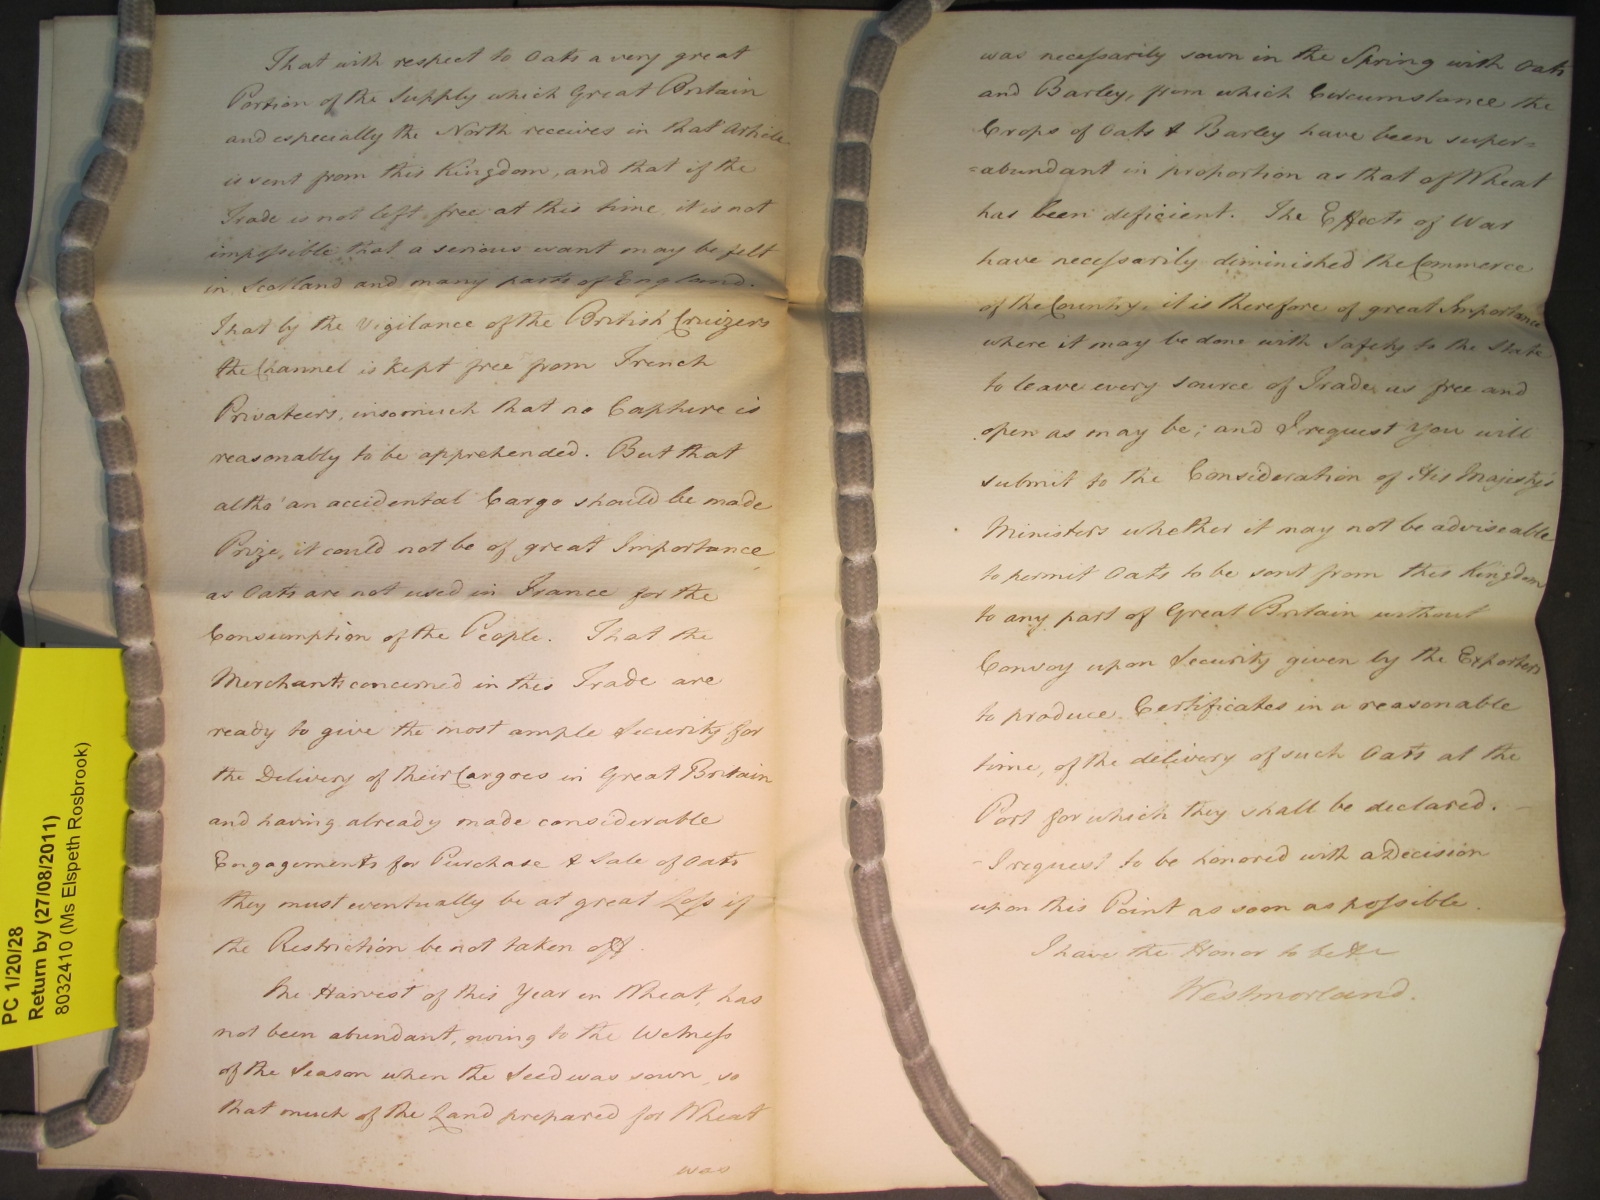 That with respect to Oats a very great
Portion of the Supply which Great Britain
and especially the North receives in that Article
is sent from this Kingdom, and that if the
Trade is not left free at this time it is not
impossible that a serious want may be felt
in Scotland and many parts of England.
That by the Vigilance of the British Cruizers
the Channel is kept free from French
Privateers, insomuch that no Capture is
reasonably to be apprehended. But that
altho' an accidental Cargo should be made
Prize, it could not be of great Importance
as Oats are not used in France for the
Consumption of the People. That the
Merchants concerned in this Trade are
ready to give the most ample Security for
the Delivery of their Cargoes in Great Britain
and having already made considerable
Engagements for Purchase & Sale of Oats
they must eventually be at great Loss if
the Restriction be not taken off.
The Harvest of this Year in Wheat has
not been abundant, owing to the Wetness
of the Season when the Seed was sown, so
that much of the Land prepared for Wheat
was
was necessarily sown in the Spring with Oats
and Barley, from which Circumstance the
Crops of Oats & Barley have been super=
=abundant in proportion as that of Wheat
has been deficient. The Effects of War
have necessarily diminished the Commerce
of the Country, it is therefore of great Importance
where it may be done with Safety to the State
to leave every source of Trade as free and
open as may be; and I request You will
submit to the Consideration of His Majesty's
Ministers whether it may not be adviseable
to permit Oats to be sent from this Kingdom
to any part of Great Britain without
Convoy upon Security given by the Exporters
to produce Certificates in a reasonable
time, of the delivery of such Oats at the
Port for which they shall be declared. -
- I request to be honored with a Decision
upon this Point as soon as possible.
I have the Honor to be &c
Westmorland.
PC 1/20/28
Return by (27/08/2011)
8032410 (Ms Elspeth Rosbrook)